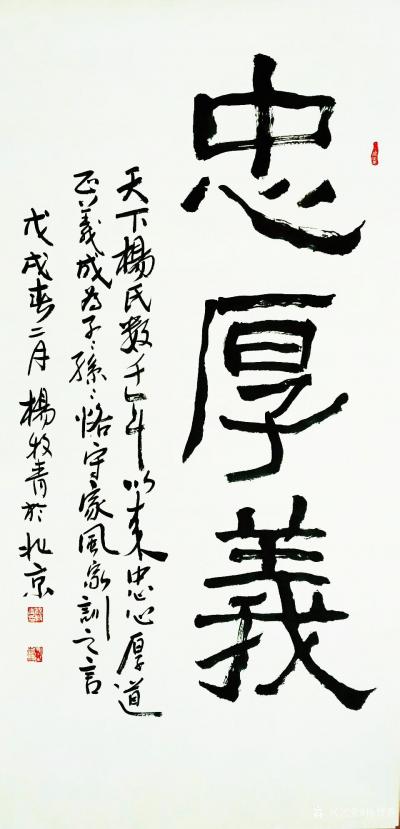 忠厚義
天下楊氏數千年以来忠心厚道
正義成為子〻孫〻恪守家風家訓之言
戊戌春二月楊牧青於北京